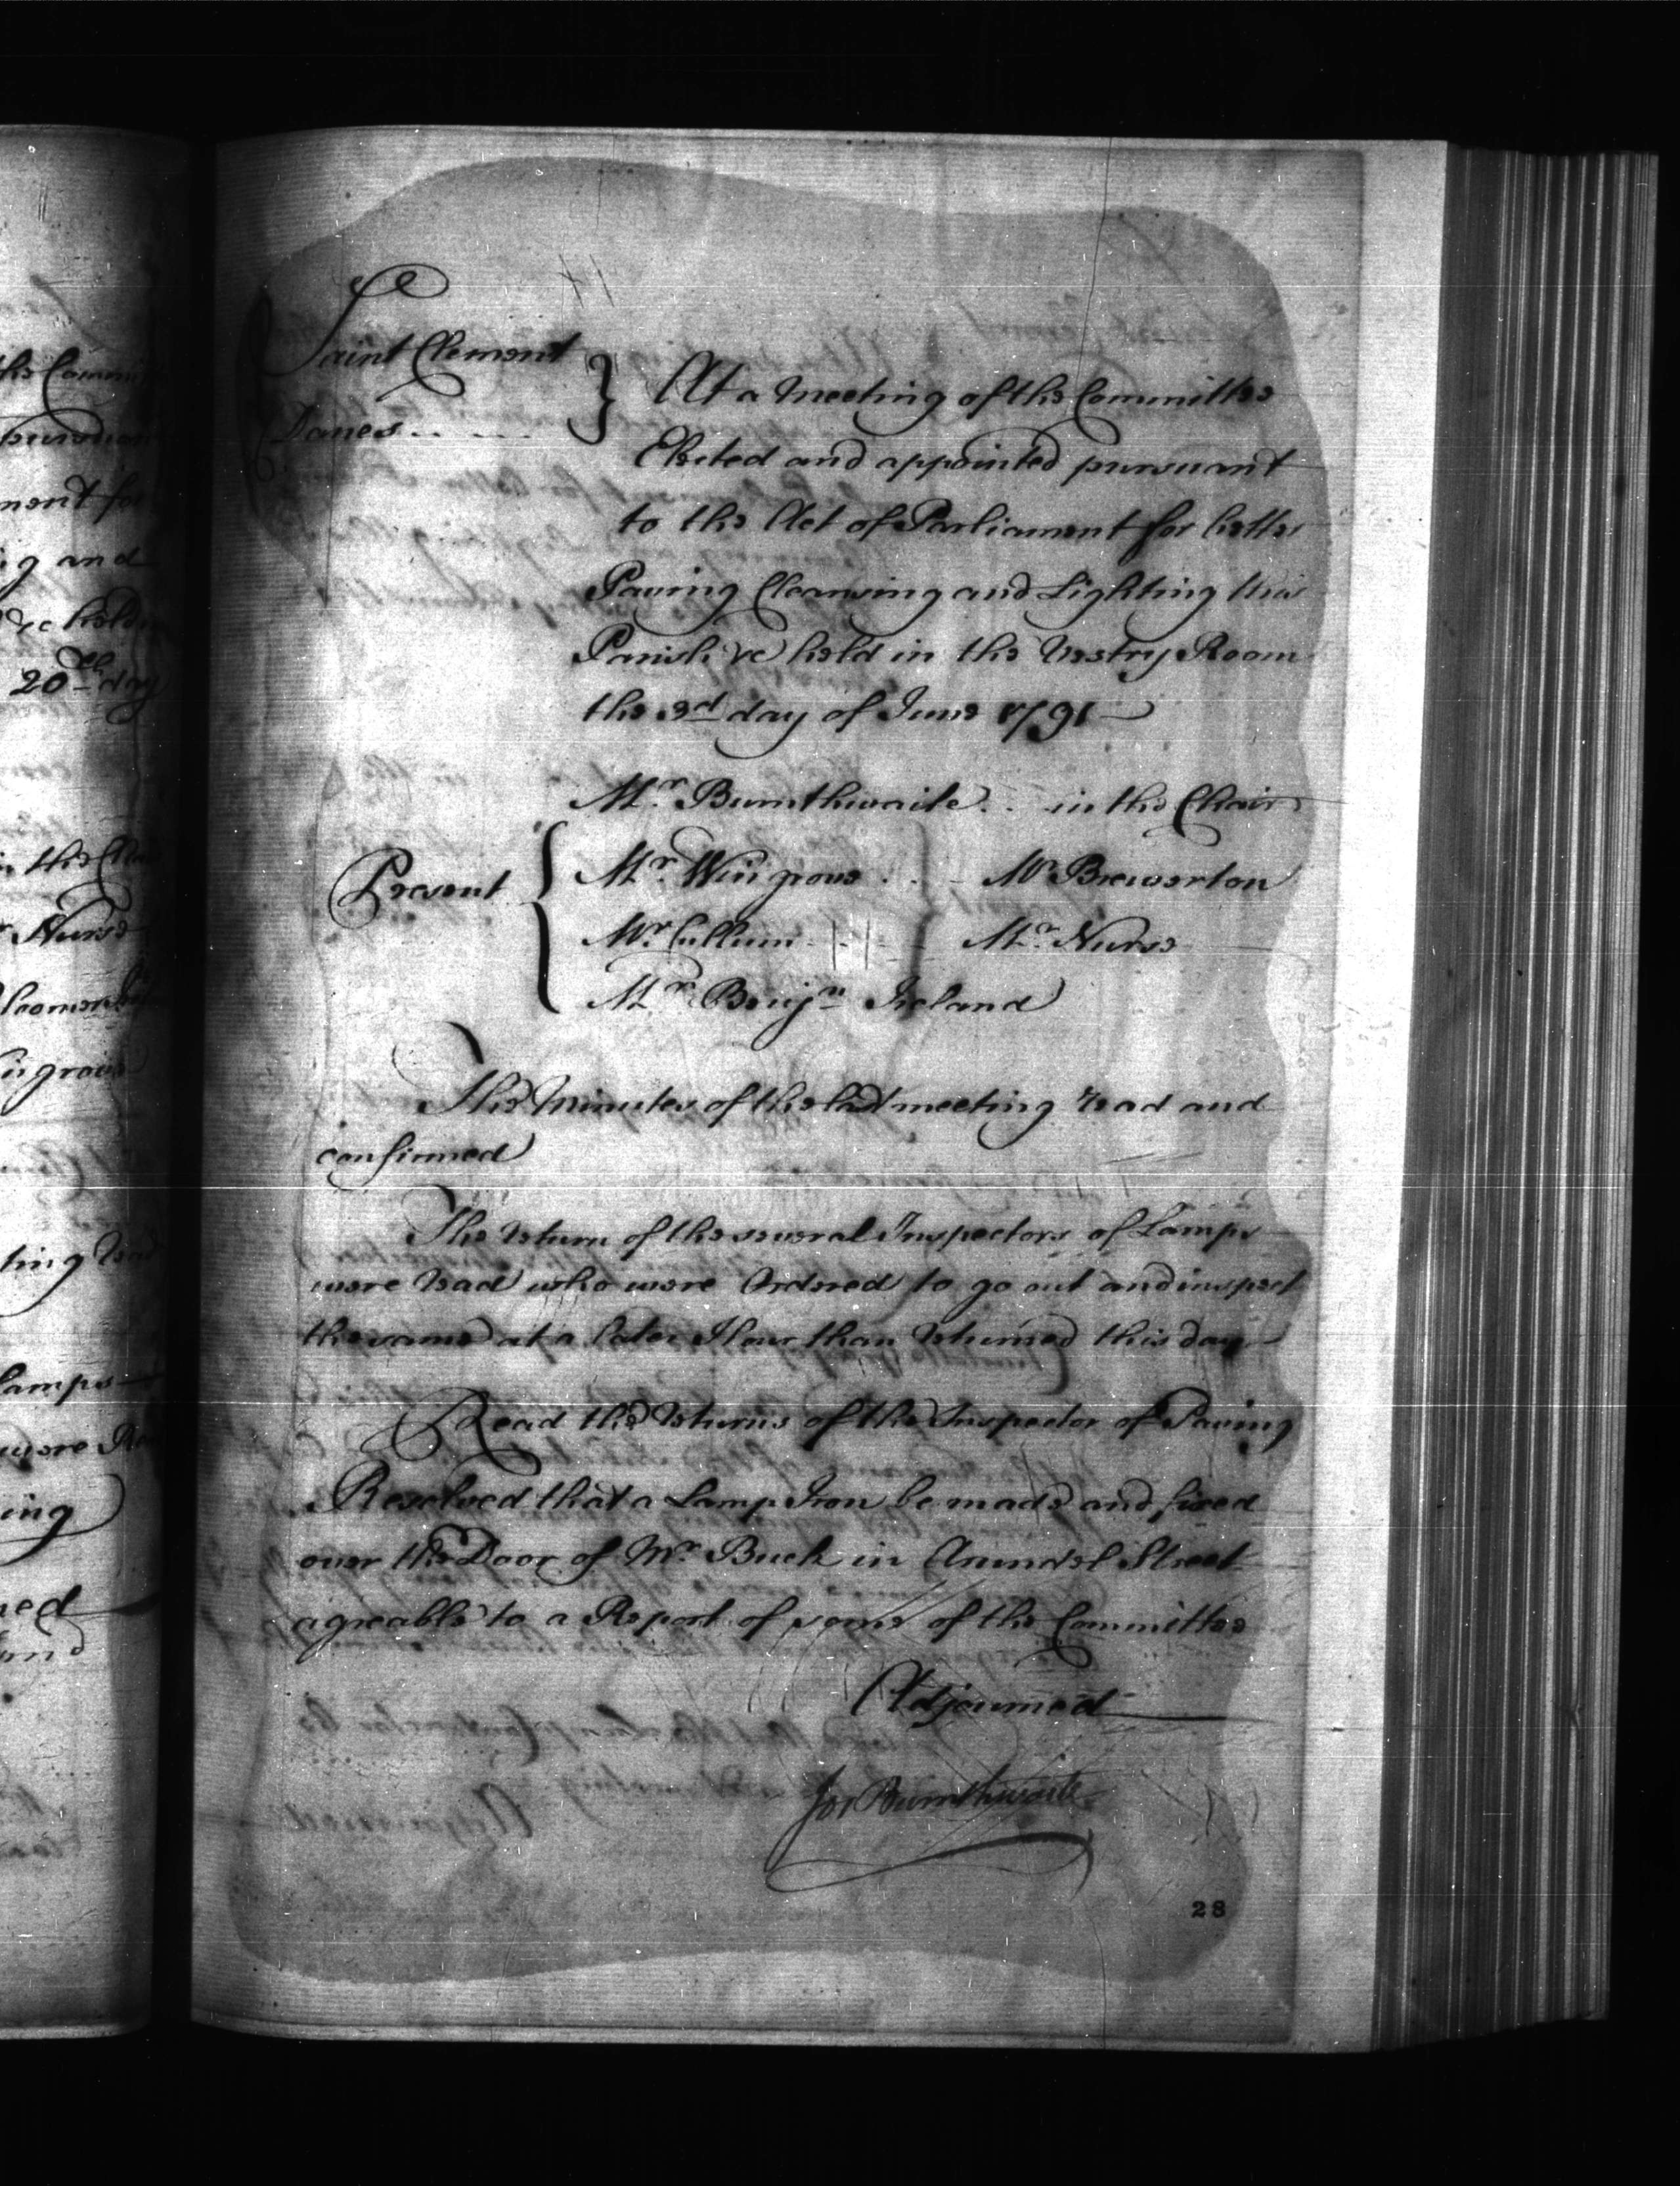 the Commit
pursuan
ment for
ing and
&c held
20th day
in the Chai
r Nurse
ingrove
ting Read
Lamps
were Re
ing
ned
Saint Clement
Danes
At a Meeting of the Committee
Elected and appointed pursuant
to the Act of Parliament for better
Paving Cleansing and Lighting this
Parish &c held in the Vestry Room
the 3d day of June 1791
Mr. Burnthwaite .. in the Chair
Present
Mr. Wingrove .. Mr Brewerton
Mr. Cullum Mr. Nurse
Mr. Benjn Ireland
The Minutes of the last meeting read and
confirmed
The return of the several Inspectors of Lamps
were read who were Ordered to go out and inspect
the same at a later Hour than returned this day
Read the returns of the Inspector of Paving
Resolved that a Lamp Iron be made and fixed
over the Door of Mr. Buck in Arundel Street
agreable to a Report of some of the Committee
Adjourned
Jos Burnthwaite
28